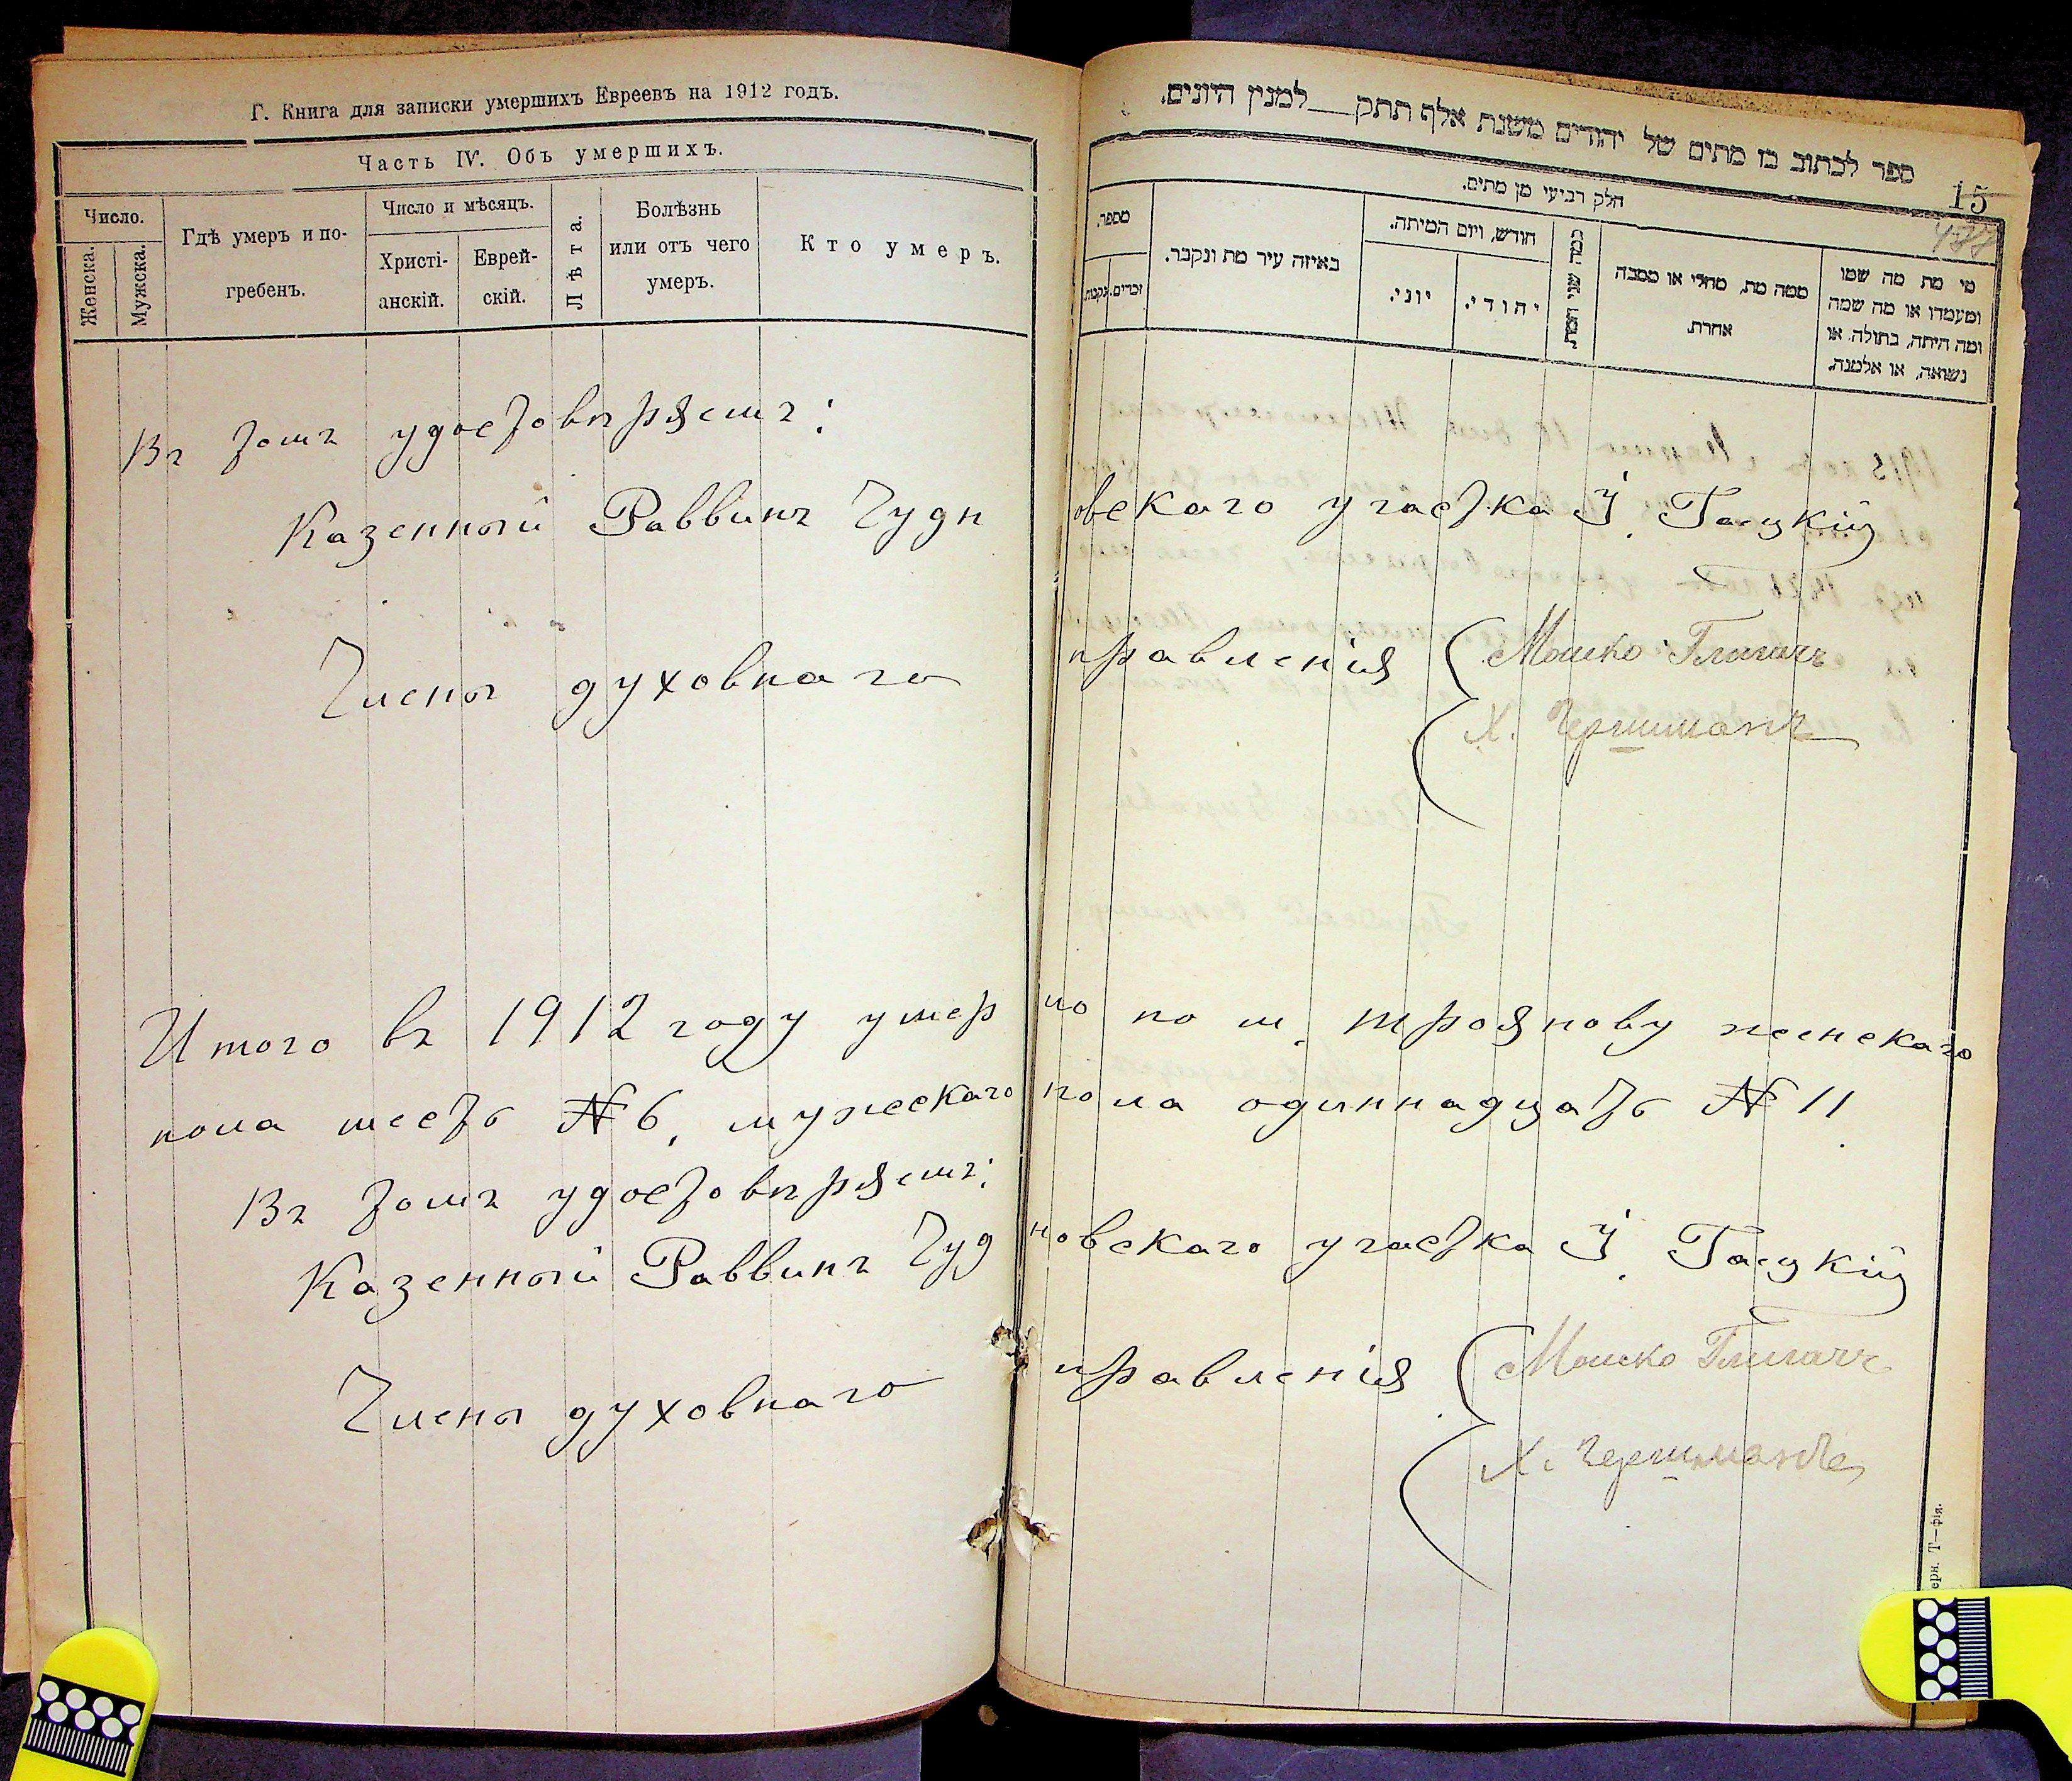 Г. Книга для записки умершихъ Евреевъ на 1912 годъ.
Часть IV. Объ умершихъ.
Число.
Женска.
Мужска.
Гдѣ умеръ и по-
гребенъ.
Число и мѣсяцъ.
Христі-
анскій.
Еврей-
скій.
Лѣта.
Болѣзнь
или отъ чего
умеръ.
Кто умеръ.
ספר לכתוב בו מתים של יהודים משנת אלף תתק למנין היונים.
15
חלק רביעי מן מתים.
מספר.
זכרים.
נקבות.
באיזה עיר מת ונקבר.
חודש, ויום המיתה.
יוני.
יהודי.
כמה שני המת.
ממה מת, מחלי או מסבה
אחרת.
מי מת מה שמו
ומעמדו או מה שמה
ומה היתה, בתולה, או
נשואה, או אלמנה.
Въ томъ удостовѣряемъ:
Казенный Раввинъ Чудновскаго участка І. Гацкій
Члены духовнаго правленія
Мошко
Х.
Итого въ 1912 году умерло по м. Троянову женскаго
пола шесть № 6, мужескаго пола одиннадцать № 11.
Въ томъ удостовѣряемъ:
Казенный Раввинъ Чудновскаго участка І. Гацкій
Члены духовнаго правленія
Мошко
Х.
Т—фія.